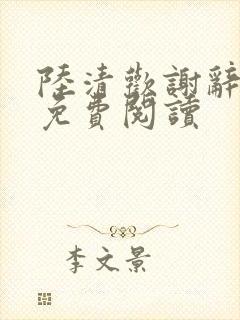 陸清歡謝辭
免費閱讀
李文景